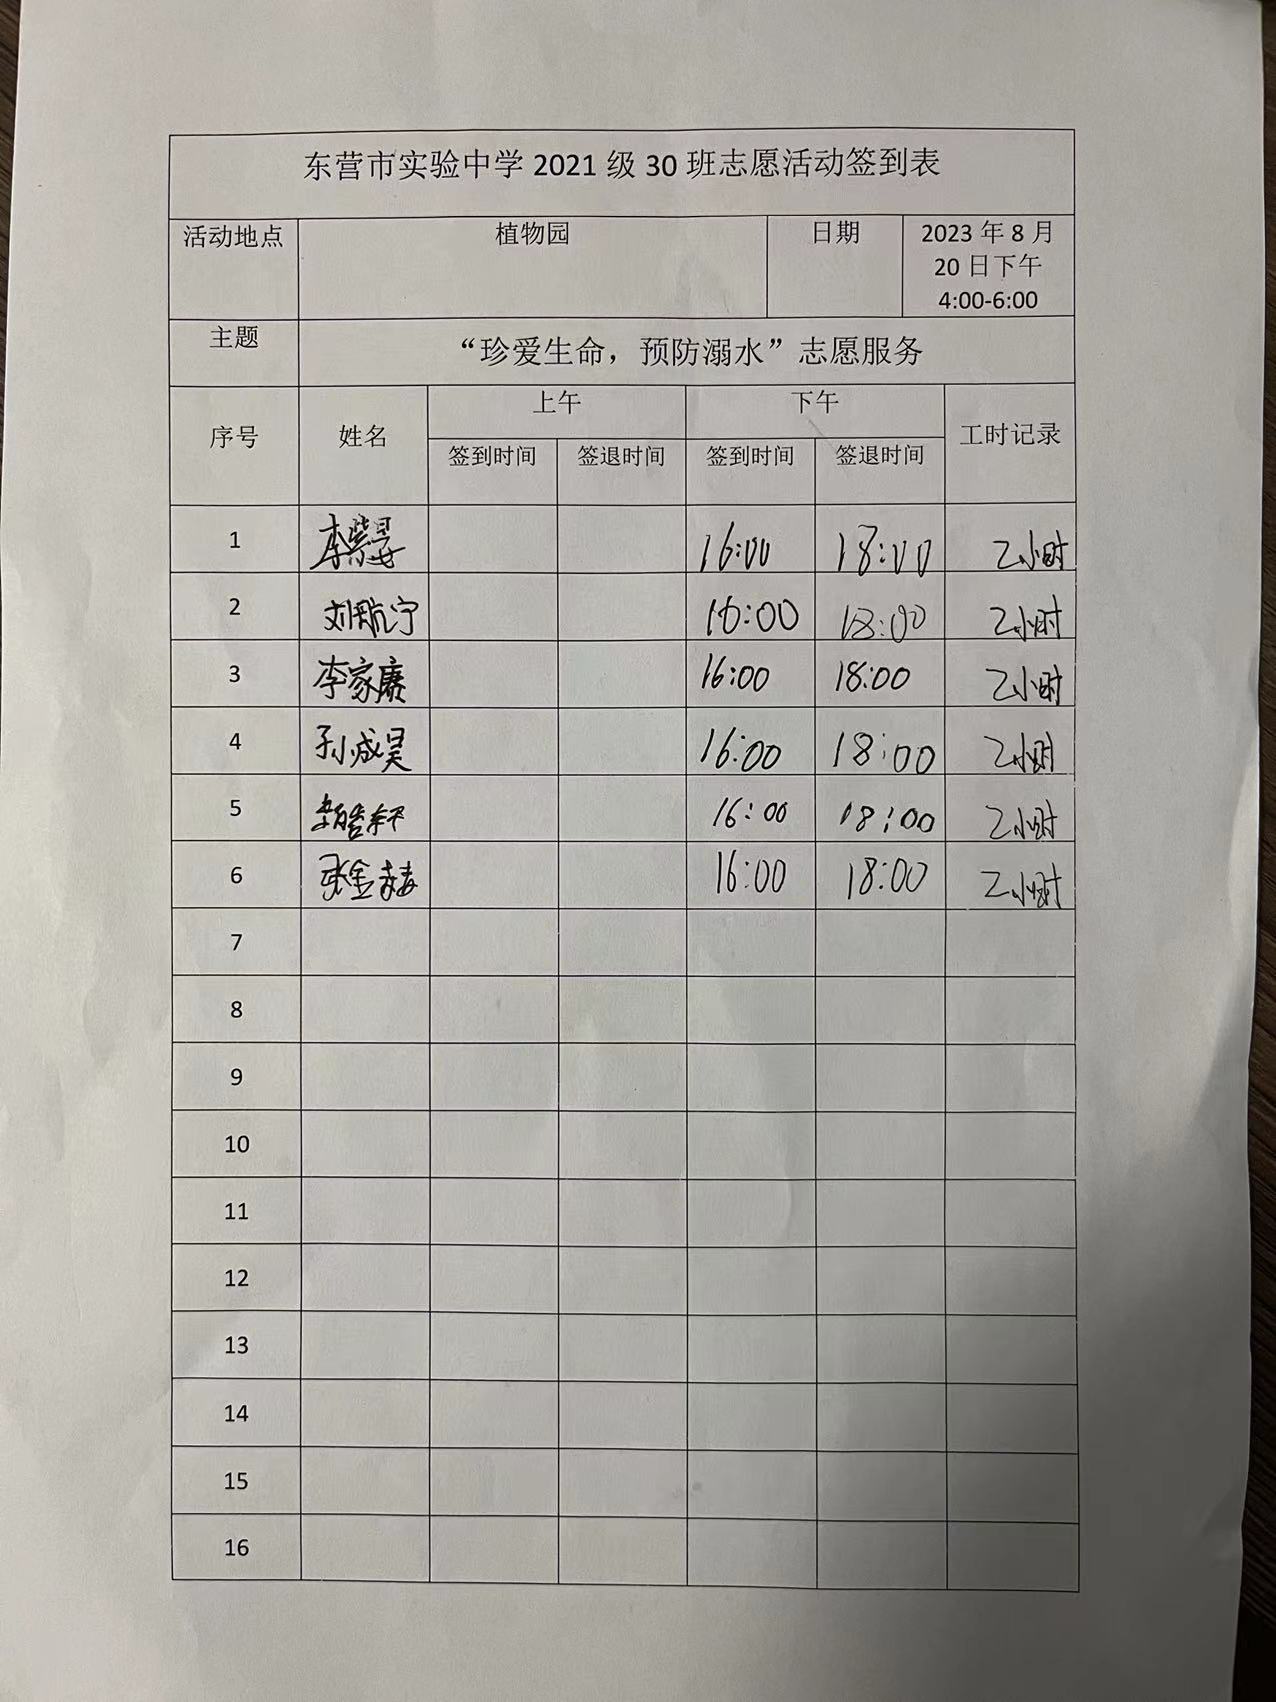 东营市实验中学 2021 级 30 班志愿活动签到表
活动地点 植物园 日期 2023 年 8 月
20 日下午
4:00-6:00
主题 “珍爱生命，预防溺水”志愿服务
序号 姓名 上午 下午 工时记录
签到时间 签退时间 签到时间 签退时间
1 李紫旻 16:00 18:00 2小时
2 刘航宁 16:00 18:00 2小时
3 李家赓 16:00 18:00 2小时
4 孙成昊 16:00 18:00 2小时
5 16:00 18:00 2小时
6 张金赫 16:00 18:00 2小时
7
8
9
10
11
12
13
14
15
16